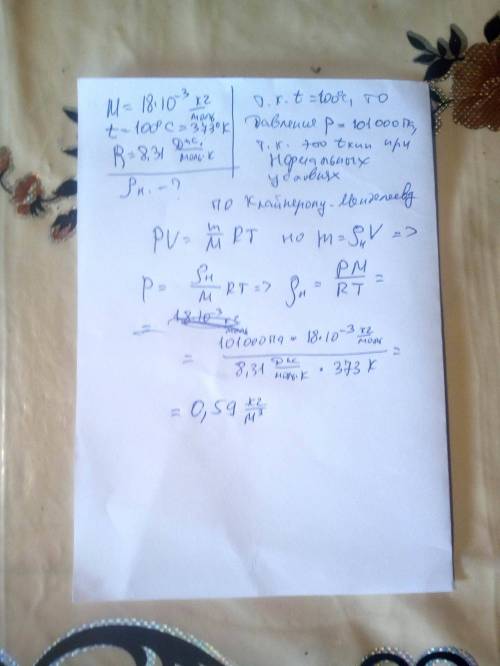 M = 18·10⁻³ кг/моль
t = 100°C = 373°K
R = 8,31 Дж/моль·К
ρн. – ?
т.к. t = 100°C, то
давление P = 101000 Па,
т.к. это t кип при
нормальных
условиях
по Клайперону-Менделееву
PV = m/M RT но m = ρн V =>
P = ρн/M RT => ρн = PM/RT =
=
= 101000 Па · 18·10⁻³ кг/моль / 8,31 Дж/моль·К · 373 К =
= 0,59 кг/м³